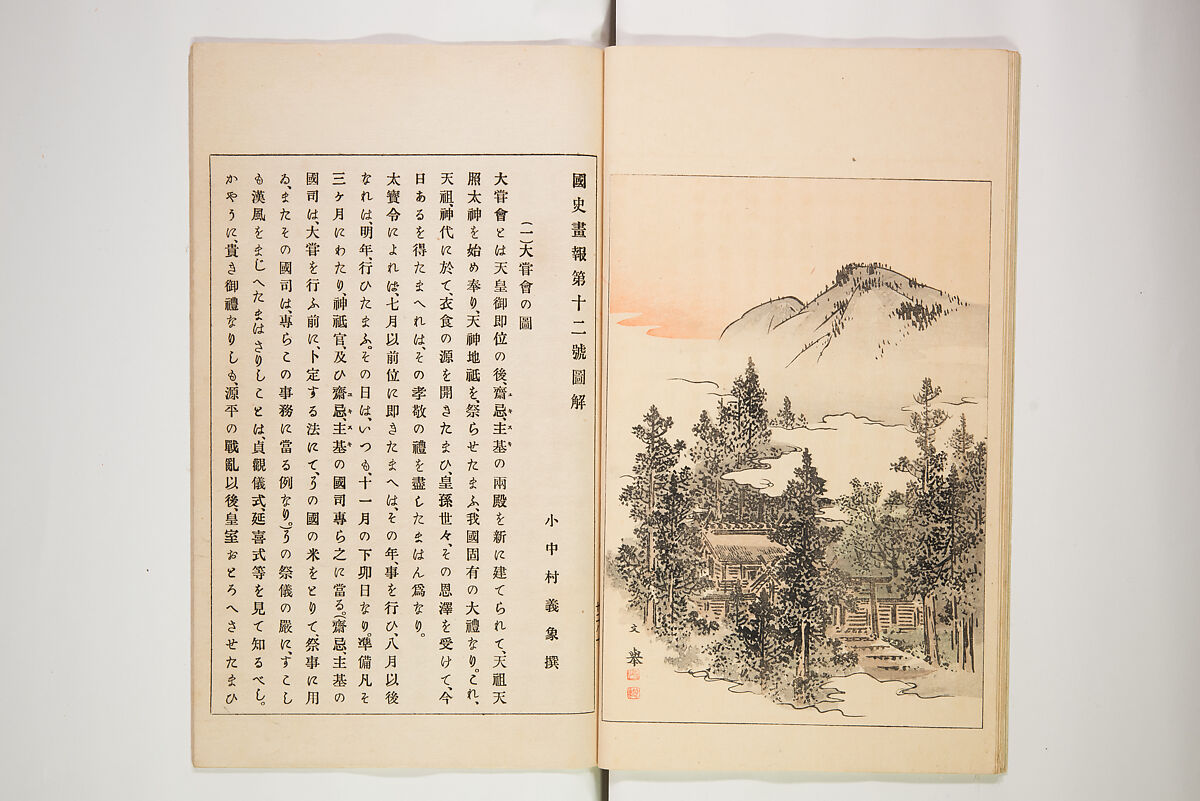 文擧
國史畫報第十二號圖解
小中村義象撰
(一)大甞會の圖
大甞會とは天皇御即位の後、齋忌、主基の兩殿を新に建てられて、天祖天
ユキスキ
照太神を始め奉り、天神地祗を、祭らせたまふ、我國固有の大禮なり。これ、
天祖、神代に於て、衣食の源を開きたまひ、皇孫世々、その恩澤を受けて、今
日あるを得たまへれは、その孝敬の禮を盡したまはん爲なり。
太寶令によれば、七月以前位に即きたまへは、その年、事を行ひ、八月以後
なれは、明年、行ひたまふ。その日は、いつも、十一月の下卯日なり。準備凡そ
三ケ月にわたり、神祗官、及ひ齋忌、主基の國司專ら之に當る。(齋忌、主基の
ユキスキ
國司は、大甞を行ふ前に、卜定する法にて、その國の米をとりて、祭事に用
ゐ、またその國司は、專らこの事務に當る例なり。)その祭儀の嚴に、すこし
も漢風をまじへたまはさりしことは、貞觀儀式、延喜式等を見て知るべし。
かやうに、貴き御禮なりしも、源平の戰亂以後、皇室おとろへさせたまひ